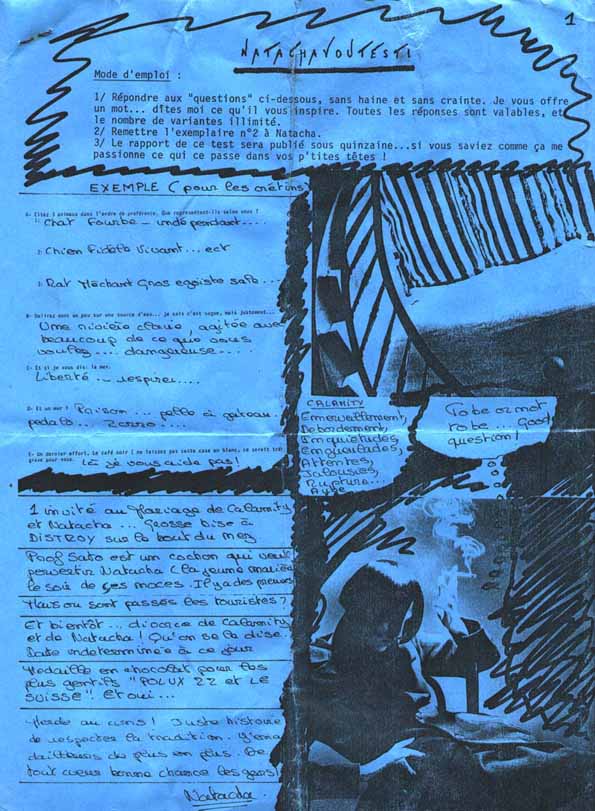 1
NATACHAVOUTESTI
Mode d'emploi :
1/ Répondre aux "questions" ci-dessous, sans haine et sans crainte. Je vous offre
un mot... dîtes moi ce qu'il vous inspire. Toutes les réponses sont valables, et
le nombre de variantes illimité.
2/ Remettre l'exemplaire n°2 à Natacha.
3/ Le rapport de ce test sera publié sous quinzaine...si vous saviez comme ça me
passionne ce qui ce passe dans vos p'tites têtes !
EXEMPLE (pour les crétins)
A- Citez 3 animaux dans l'ordre de préférence. Que représentent-ils selon vous ?
1) Chat Fourbe - indépendant....
2) Chien Fidèle Vivant... ect
3) Rat Méchant Gros egoïste sale...
B- Délirez donc un peu sur une source d'eau... je sais c'est vague, mais justement...
Une rivière claire, agitée avec
beaucoup de ce que vous
voulez.... dangereuse....
C- Et si je vous dis: la mer.
Liberté... respirer....
D- Et un mur ? Prison... pelle à gateau
pedalo... Zorro....
E- Un dernier effort. Le café noir ( ne laissez pas cette case en blanc, ce serait très
grave pour vous.
Là je vous aide pas !
CALAMITY
Emerveillement,
Debordement,
Inquietudes,
Engueulades,
Attentes,
Jalousies,
Rupture...
To be or not
to be... Good
question !
1 invité au Mariage de Calamity
et Natacha... Grosse bise à
DISTROY sur le bout du nez
Prof Sato est un cochon qui veut
pervertir Natacha (la jeune mariée)
le soir de ses noces. Il y a des preuves
Mais ou sont passés les touristes ?
Et bientôt... divorce de Calamity
et de Natacha ! Qu'on se le dise.
Date indeterminée à ce jour
Medaille en chocolat pour les
plus gentils "POLUX 22 et LE
SUISSE". Et oui...
Merde au cons ! Juste histoire
de respecter la tradition. Y'en a
d'ailleurs de plus en plus. De
tout coeur bonne chance les gens !
Natacha